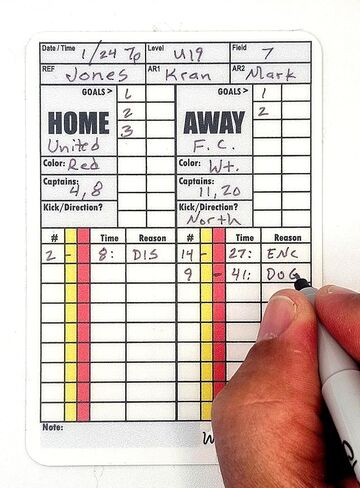 Date / Time 1/24 7p Level U19 Field 7
REF Jones AR1 Kran AR2 Mark
GOALS > 1 GOALS > 1
2 2
HOME 3 AWAY
United F.C.
Color: Red Color: Wt.
Captains: 4,8 Captains: 11,20
Kick/Direction? Kick/Direction?
North
# Time Reason # Time Reason
2 - 8: DIS 14 - 27: ENC
9 - 41: DOG
Note: